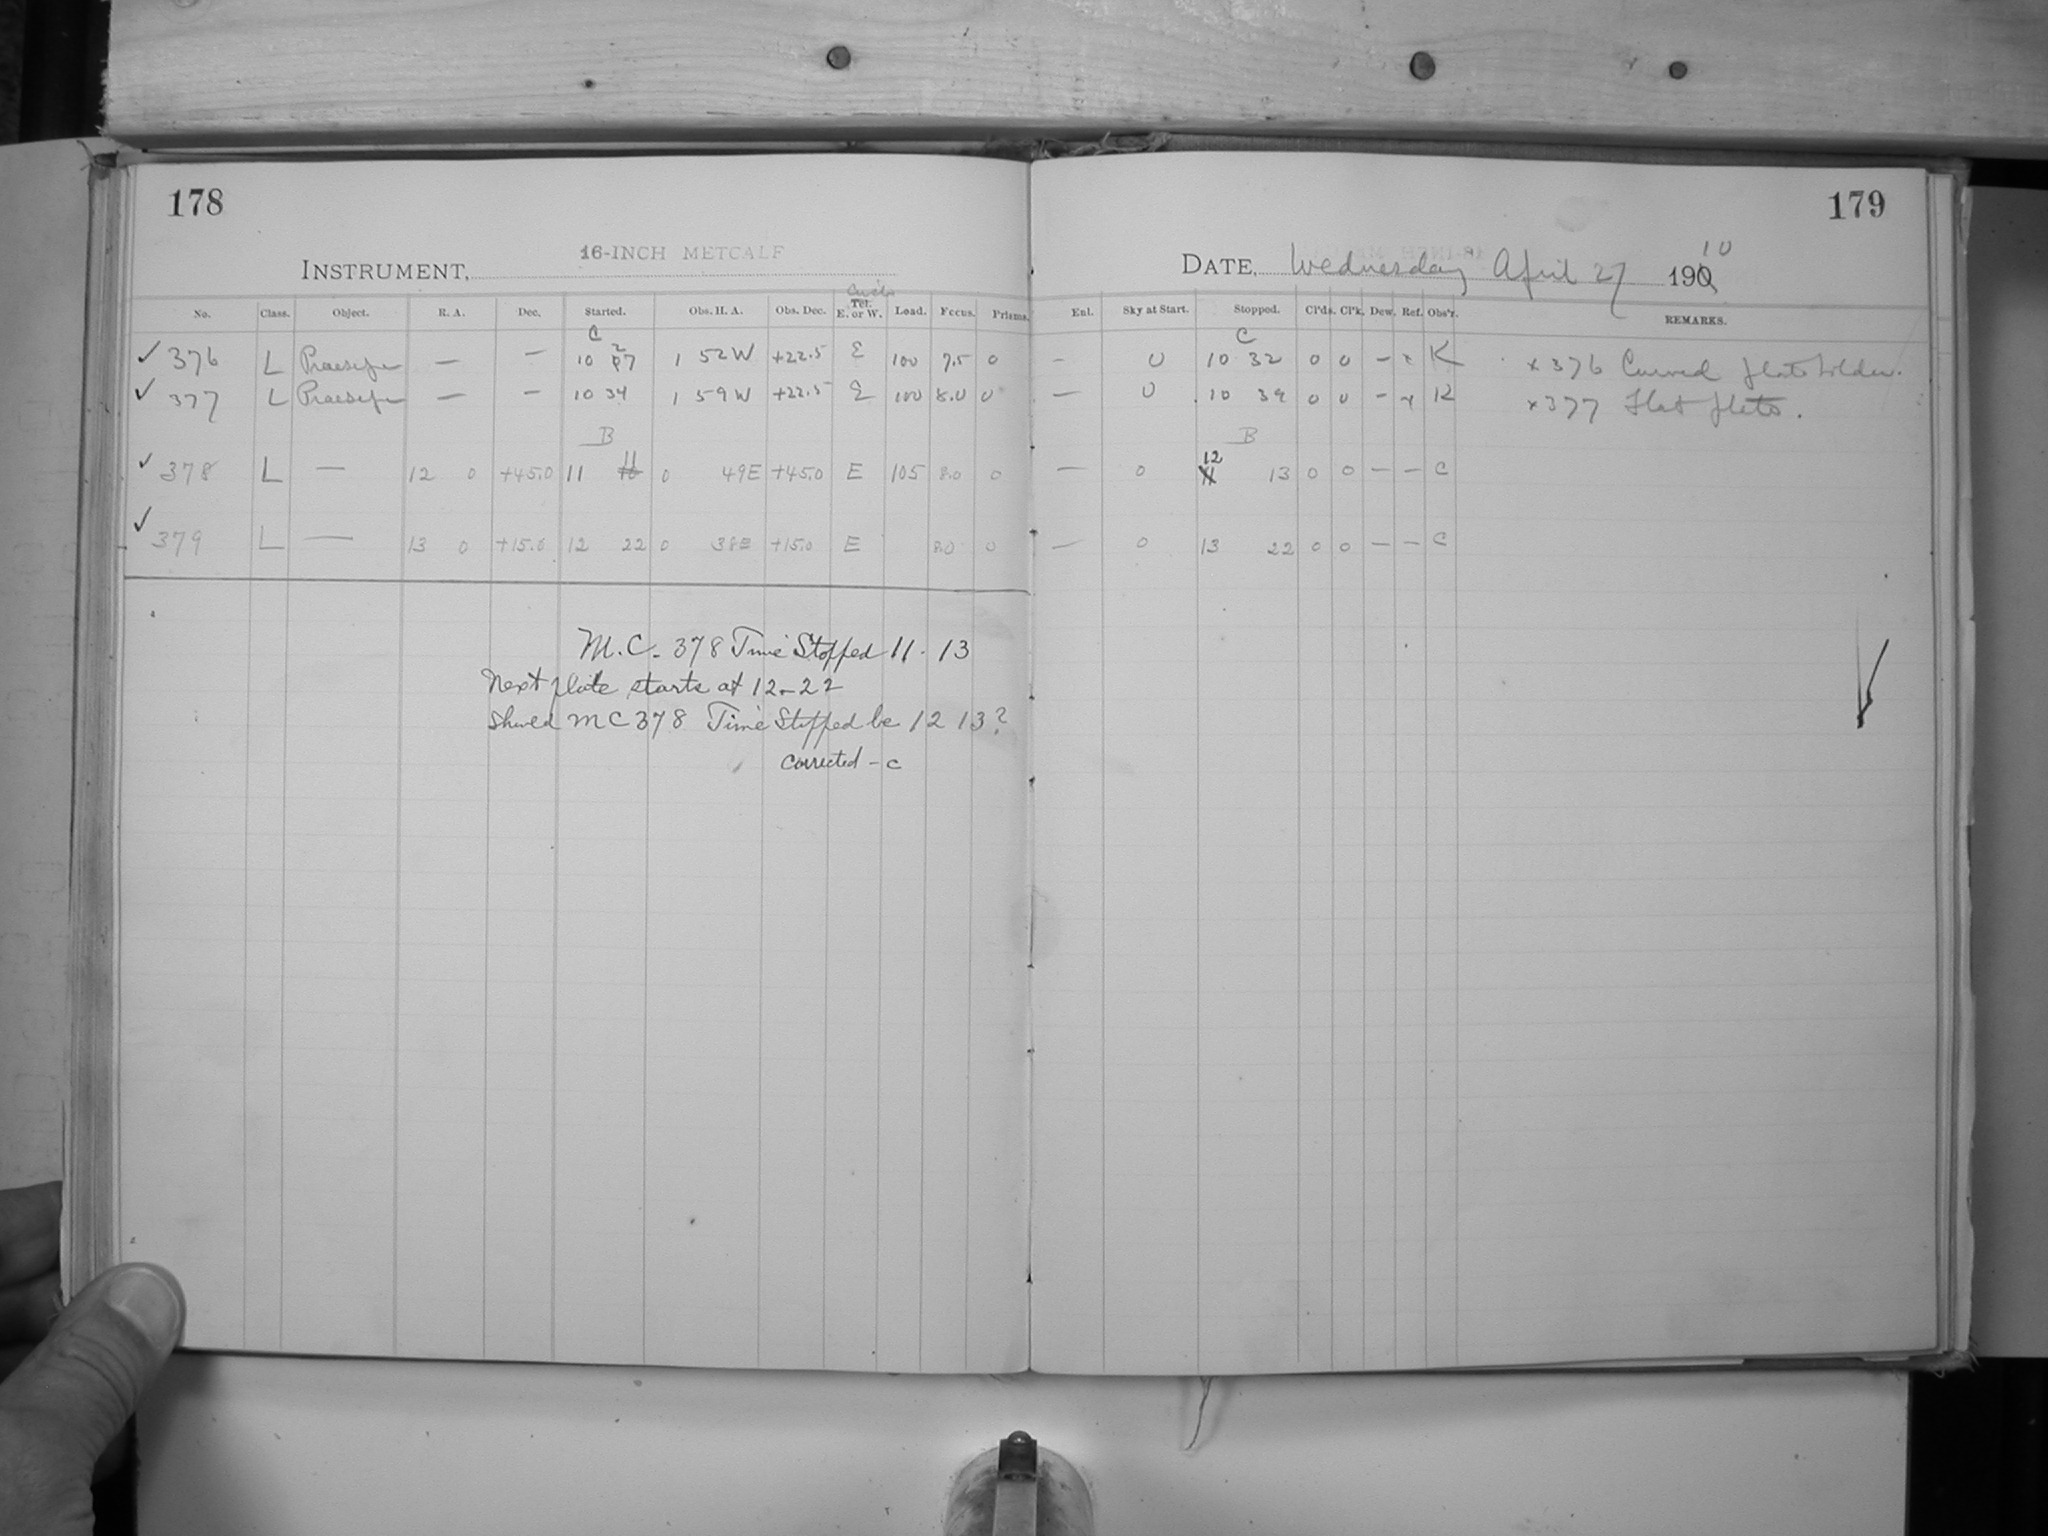 178
16-INCH METCALF
INSTRUMENT,
No. Class. Object. R. A. Dec. Started. Obs. H. A. Obs. Dec. Tel. E. or W. Load. Focus. Prisms.
C
✓ 376 L Praesepe — — 10 27 1 52 W +22.5 E 100 7.5 0
✓ 377 L Praesepe — — 10 34 1 59 W +22.5 E 100 8.0 0
B
✓ 378 L — 12 0 +45.0 11 0 49E +45.0 E 105 8.0 0
✓ 379 L — 13 0 +15.0 12 22 0 38E +15.0 E 8.0 0
M.C. 378 Time Stopped 11. 13
Next plate starts at 12-22
Should MC 378 Time Stopped be 12 13?
Corrected - C
179
DATE, Wednesday April 27 1910
Enl. Sky at Start. Stopped. Cl'ds. Cl'k. Dew. Ref. Obs'r. REMARKS.
C
— 0 10 32 0 0 — x K x 376 Curved plate holder.
— 0 10 39 0 0 — x K x 377 Flat plate.
B
— 0 12 13 0 0 — — C
— 0 13 22 0 0 — — C